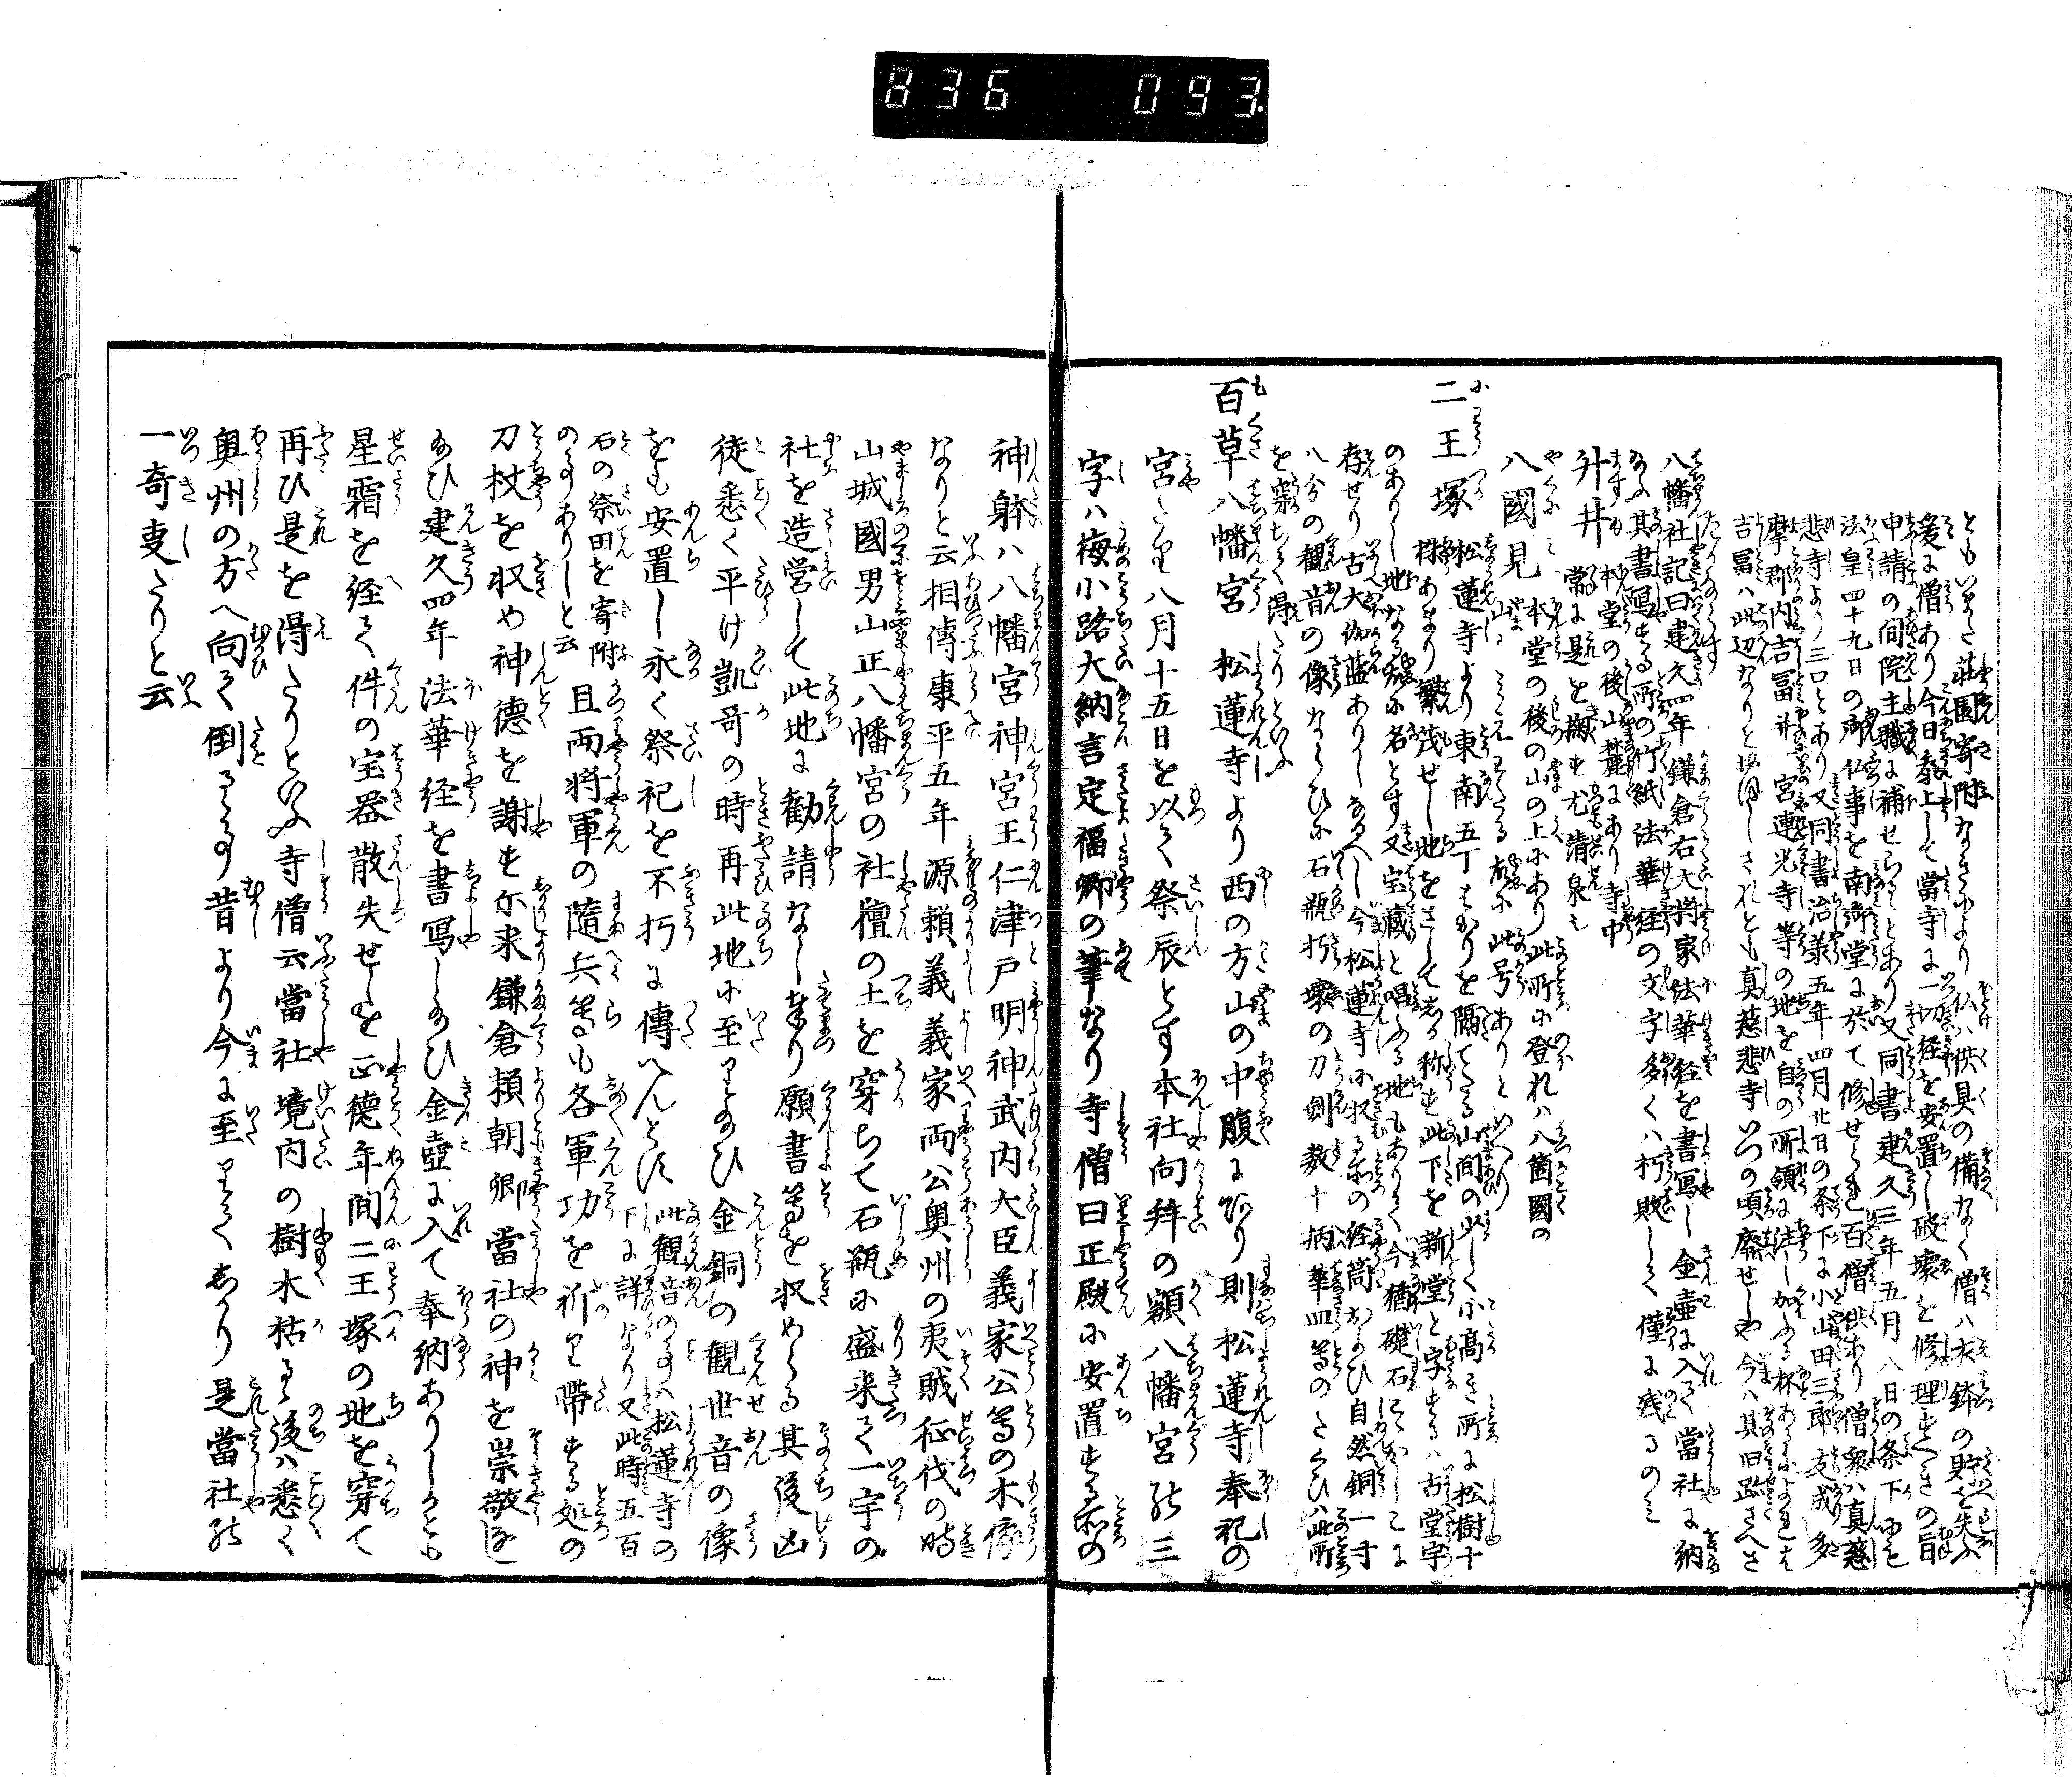 836 093
ともいまた荘園寄附なきゆより仏ハ供具の備なく僧ハ衣鉢の貯を失ふ
爰に僧あり今日参上して當寺に一切経を安置し破壊を修理すへきの旨
申請の間院主職に補せらるとあり又同書建久三年五月八日の条下に
法皇四十九日の御仏事を南御堂に於て修せらる百僧供あり僧衆ハ真慈
悲寺より三口とあり又同書治承五年四月廿日の条下に小山田三郎
摩郡内吉冨并一宮蓮光寺等の地を自の所領に注し加ふる
吉冨ハ此辺なりとおほしされとも真慈悲寺いつの頃廃せしや今ハ其旧跡さへさ
たかならす
八幡社記曰建久四年鎌倉右大将家法華経を書写し金壷に入て當社に納
給ふ其書写する所の竹紙法華経の文字多くハ朽敗して僅に残るのミ
升井 本堂の後山麓にあり寺中
常に是を掬す尤清泉也
八國見 本堂の後の山の上にあり此所に登れハ八箇國の
山々見えわたる故に此号ありといへり
二王塚 松蓮寺より東南五丁はかりを隔てたる山間の少しく小高き所に松樹十
株あまり繁茂せし地をさして名称す此下を新堂と字するハ古堂宇
のありし地なる故に名とす又宝蔵と唱ふる地もありて今猶礎石こゝかしこに
存せり古大伽藍ありしなるへし今松蓮寺に収る所の経筒および自然銅一寸
八分の観音の像ならひに石瓶朽壊の刀劔数十柄華皿等のたくひハ此所
を穿ちて得たりといふ
百草八幡宮 松蓮寺より西の方山の中腹にあり則松蓮寺奉祀の
宮たり八月十五日を以て祭辰とす本社向拜の額八幡宮の三
字ハ梅小路大納言定福卿の筆なり寺僧曰正殿に安置する所の
神躰ハ八幡宮神宮王仁津戸明神武内大臣義家公等の木像
なりと云相傳康平五年源頼義義家両公奥州の夷賊征伐の時
山城國男山正八幡宮の社檀の土を穿ちて石瓶に盛来て一宇の
社を造営して此地に勧請なし奉り願書等を収めらる其後凶
徒悉く平け凱哥の時再此地に至りたまひ金銅の観世音の像
をも安置し永く祭祀を不朽に傳へんとす 此観音の事ハ松蓮寺の
下に詳なり又此時五百
石の祭田を寄附
の事ありしと云 且両将軍の随兵等も各軍功を祈り帯する処の
刀杖を収め神徳を謝す尓来鎌倉頼朝卿當社の神を崇敬
給ひ建久四年法華経を書写し給ひ金壷に入て奉納ありしかとも
星霜を経て件の宝器散失せしを正徳年間二王塚の地を穿て
再ひ是を得たりといふ寺僧云當社境内の樹木枯るゝ後ハ悉く
奥州の方へ向て倒るゝ事昔より今に至りてしかり是當社の
一奇事たりと云